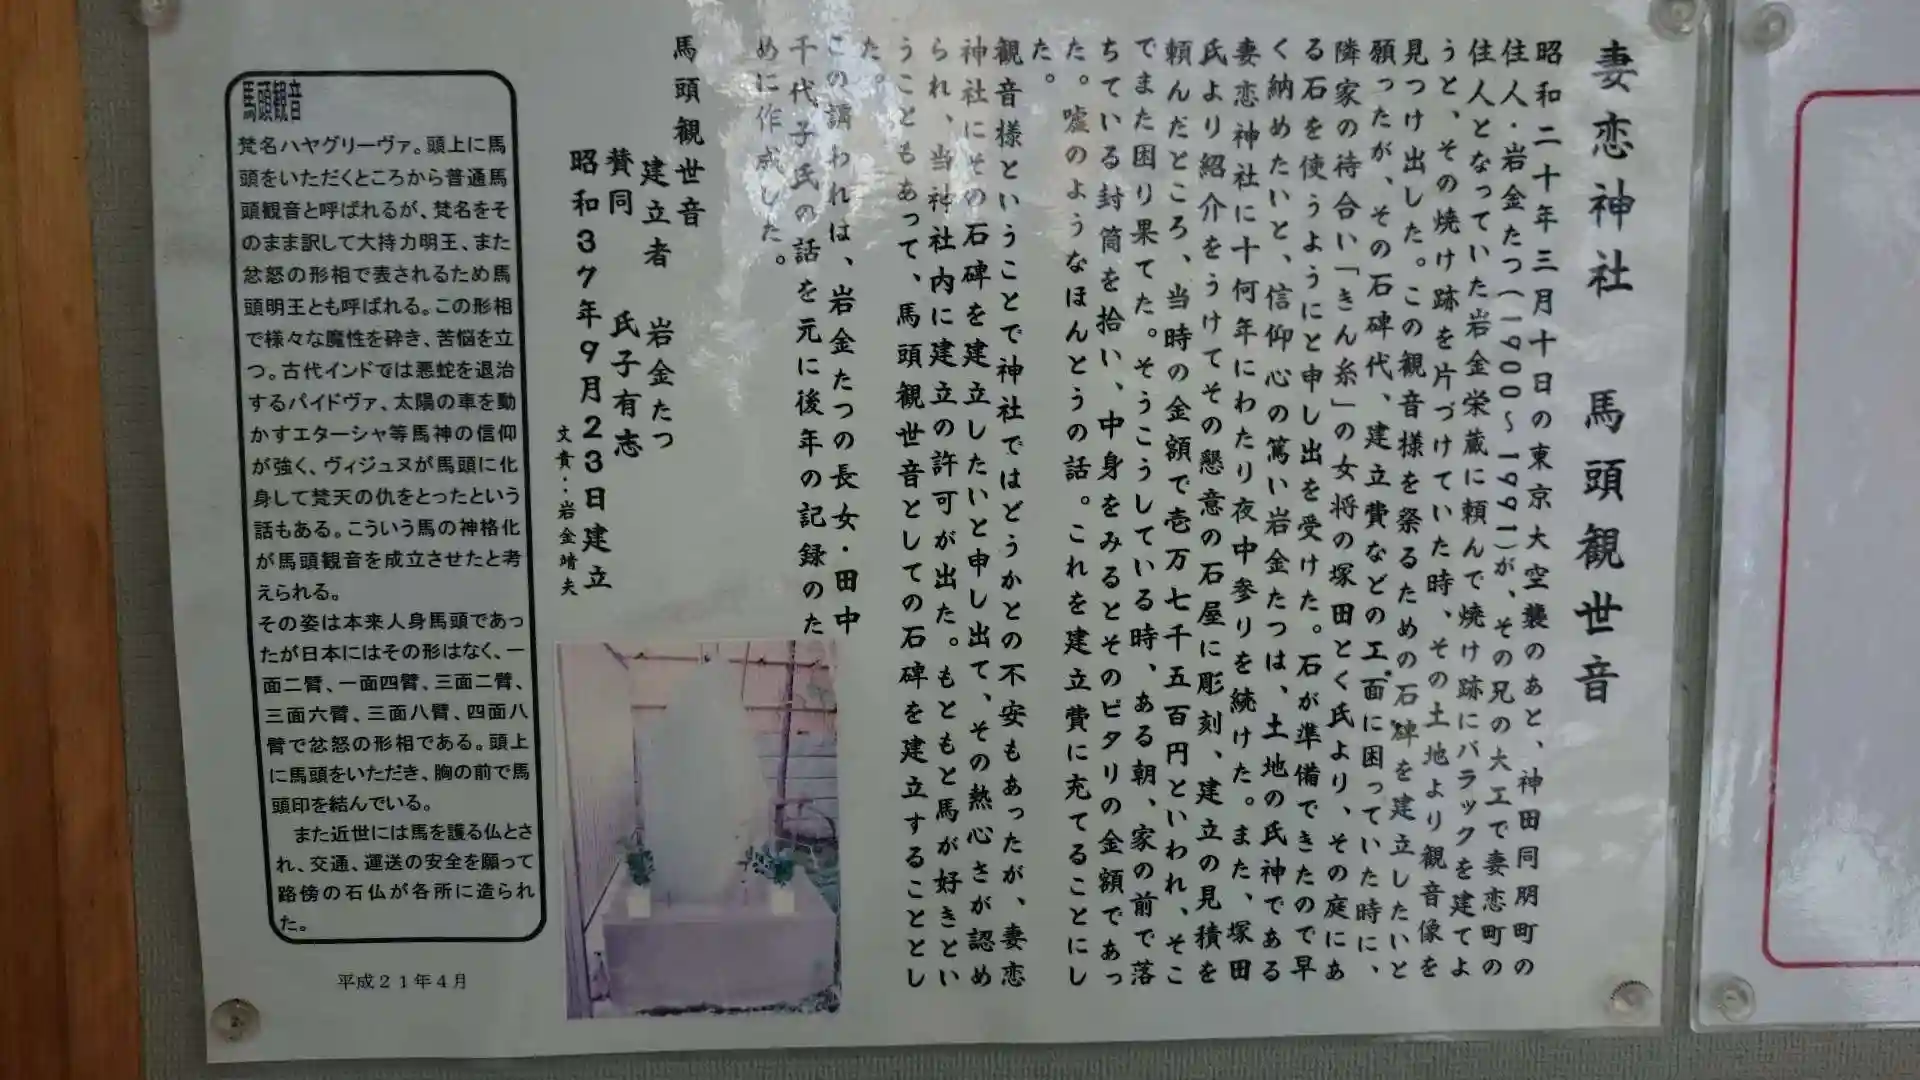 妻恋神社 馬頭観世音
昭和二十年三月十日の東京大空襲のあと、神田同朋町の
住人・岩金たつ(1900~1991)が、その兄の大工で妻恋町の
住人となっていた岩金栄蔵に頼んで焼け跡にバラックを建てよ
うと、その焼け跡を片づけていた時、その土地より観音像を
見つけ出した。この観音様を祭るための石碑を建立したいと
願ったが、その石碑代、建立費などの工面に困っていた時に、
隣家の待合い「きん糸」の女将の塚田とく氏より、その庭にあ
る石を使うようにと申し出を受けた。石が準備できたので早
く納めたいと、信仰心の篤い岩金たつは、土地の氏神である
妻恋神社に十何年にわたり夜中参りを続けた。また、塚田
氏より紹介をうけてその懇意の石屋に彫刻、建立の見積を
頼んだところ、当時の金額で壱万七千五百円といわれ、そこ
でまた困り果てた。そうこうしている時、ある朝、家の前で落
ちている封筒を拾い、中身をみるとそのピタリの金額であっ
た。嘘のようなほんとうの話。これを建立費に充てることにし
た。
観音様ということで神社ではどうかとの不安もあったが、妻恋
神社にその石碑を建立したいと申し出て、その熱心さが認め
られ、当神社内に建立の許可が出た。もともと馬が好きとい
うこともあって、馬頭観世音としての石碑を建立することとし
た。
この謂われは、岩金たつの長女・田中
千代子氏の話を元に後年の記録のた
めに作成した。
馬頭観世音
建立者 岩金たつ
賛同 氏子有志
昭和37年9月23日建立
文責:岩金靖夫
馬頭観音
梵名ハヤグリーヴァ。頭上に馬
頭をいただくところから普通馬
頭観音と呼ばれるが、梵名をそ
のまま訳して大持力明王、また
忿怒の形相で表されるため馬
頭明王とも呼ばれる。この形相
で様々な魔性を砕き、苦悩を立
つ。古代インドでは悪蛇を退治
するパイドヴァ、太陽の車を動
かすエターシャ等馬神の信仰
が強く、ヴィジュヌが馬頭に化
身して梵天の仇をとったという
話もある。こういう馬の神格化
が馬頭観音を成立させたと考
えられる。
その姿は本来人身馬頭であっ
たが日本にはその形はなく、一
面二臂、一面四臂、三面二臂、
三面六臂、三面八臂、四面八
臂で忿怒の形相である。頭上
に馬頭をいただき、胸の前で馬
頭印を結んでいる。
また近世には馬を護る仏とさ
れ、交通、運送の安全を願って
路傍の石仏が各所に造られ
た。
平成21年4月